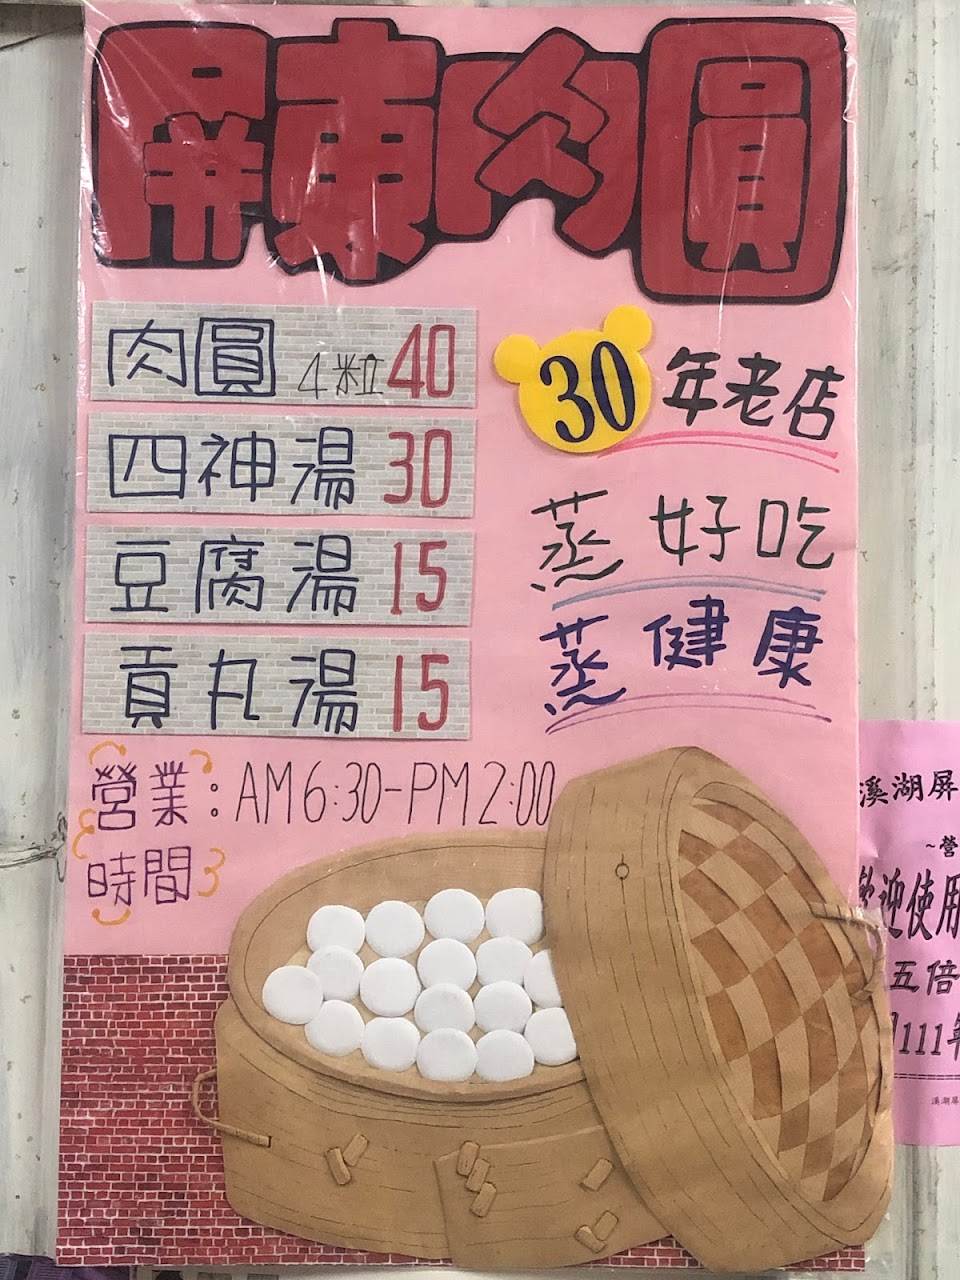 屏東肉圓
肉圓 4粒 40
四神湯 30
豆腐湯 15
貢丸湯 15
30年老店
蒸好吃
蒸健康
營業時間：AM6:30-PM2:00
溪湖屏
~營
歡迎使用
五倍
111年
溪湖屏